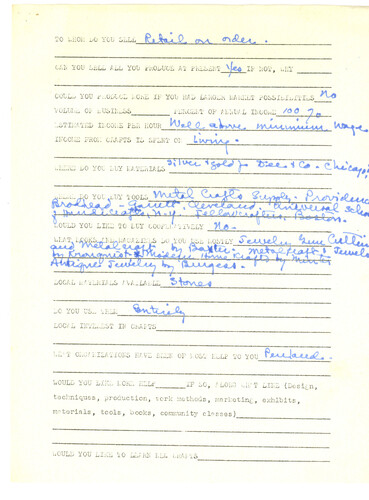 TO WHOM DO YOU SELL Retail on order.
CAN YOU SELL ALL YOU PRODUCE AT PRESENT Yes IF NOT, WHY
COULD YOU PRODUCE MORE IF YOU HAD LARGER MARKET POSSIBILITIES No
VOLUME OF BUSINESS PERCENT OF ANNUAL INCOME 100%
ESTIMATED INCOME PER HOUR Well above minimum wage
INCOME FROM CRAFTS IS SPENT ON Living.
WHERE DO YOU BUY MATERIALS Silver & gold from Dee & Co. Chicago,
WHERE DO YOU BUY TOOLS Metal Crafts Supply. Providence
Brodhead-Garrett, Cleveland, Universal School
of Handicrafts, N.Y. Fellowcrafters, Boston.
WOULD YOU LIKE TO BUY COOPERATIVELY No.
WHAT BOOKS OR MAGAZINES DO YOU USE MOSTLY Jewelry, Gem Cutting
and Metalcraft by Baxter. Metal Craft & Jewelry
by Kronquist & Modern Home Crafts by
Antique Jewelry by Burgess.
LOCAL MATERIALS AVAILABLE Stones
DO YOU USE THEM Entirely
LOCAL INTEREST IN CRAFTS
WHAT ORGANIZATIONS HAVE BEEN OF MOST HELP TO YOU Penland.
WOULD YOU LIKE MORE HELP IF SO, ALONG WHAT LINE (Design,
techniques, production, work methods, marketing, exhibits,
materials, tools, books, community classes)
WOULD YOU LIKE TO LEARN NEW CRAFTS